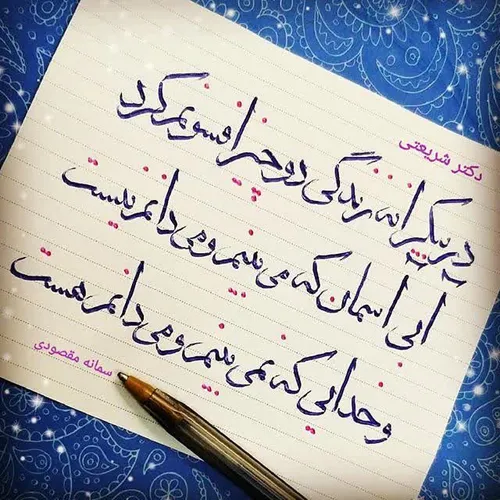 دکتر شریعتی
در بیکرانه زندگی دو چیز افسونم کرد
آبی آسمان که می بینم و می دانم نیست
و خدایی که نمی بینم و می دانم هست
سمانه مقصودی